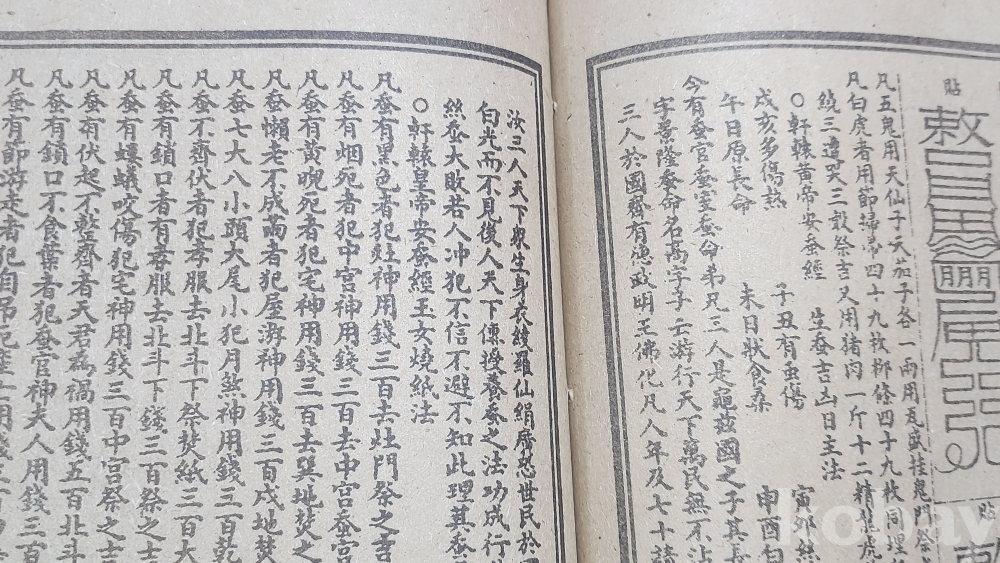 貼
敕
貼
凡五鬼用天仙子天茄子各一兩用瓦盛挂鬼門祭
凡白虎者用節掃帚四十九枚柳條四十九枚同埋
繞三遭哭三歎祭吉又用猪肉一斤十二精龍虎
○軒轅黄帝安蚕經　生蚕吉凶日主法
戌亥多傷熱　子丑有虫傷　寅卯絲
午日原長命　未日狀食桑　申酉白
今有蚕官蚕室蚕命弟兄三人是龜茲國之子其長
字景隆蚕命名高字子云游行天下萬民無不沾
三人於國齋有憑政明王佛化凡八年及七十諸
汝三人天下衆生身衣綾羅仙絹廣惡世民於
白光而不見後人天下傳授養蚕之法功成行
絲蚕大敗若人冲犯不信不避不知此理其蚕
○軒轅皇帝安蚕經王女燒紙法
凡蚕有黑色者犯灶神用錢三百去灶門祭之吉
凡蚕有烟死者犯中宫神用錢三百去中宫蚕宫
凡蚕有黄晚死者犯宅神用錢三百去巽地焚之
凡蚕懶老不成繭者犯屋游神用錢三百戌地焚
凡蚕七大八小頭大尾小犯月煞神用錢三百乾
凡蚕不齊伏者犯孝服去北斗下祭焚紙三百大
凡蚕有鎖口者有孝服去北斗下錢三百祭之
凡蚕有螻蟻咬傷犯宅神用錢三百中宫祭之吉
凡蚕有伏起不整齊者天君為禍用錢五百北斗
凡蚕有鎖口不食葉者犯蚕官神夫人用錢三百
凡蚕有節游走者犯自吊死座土用錢三百